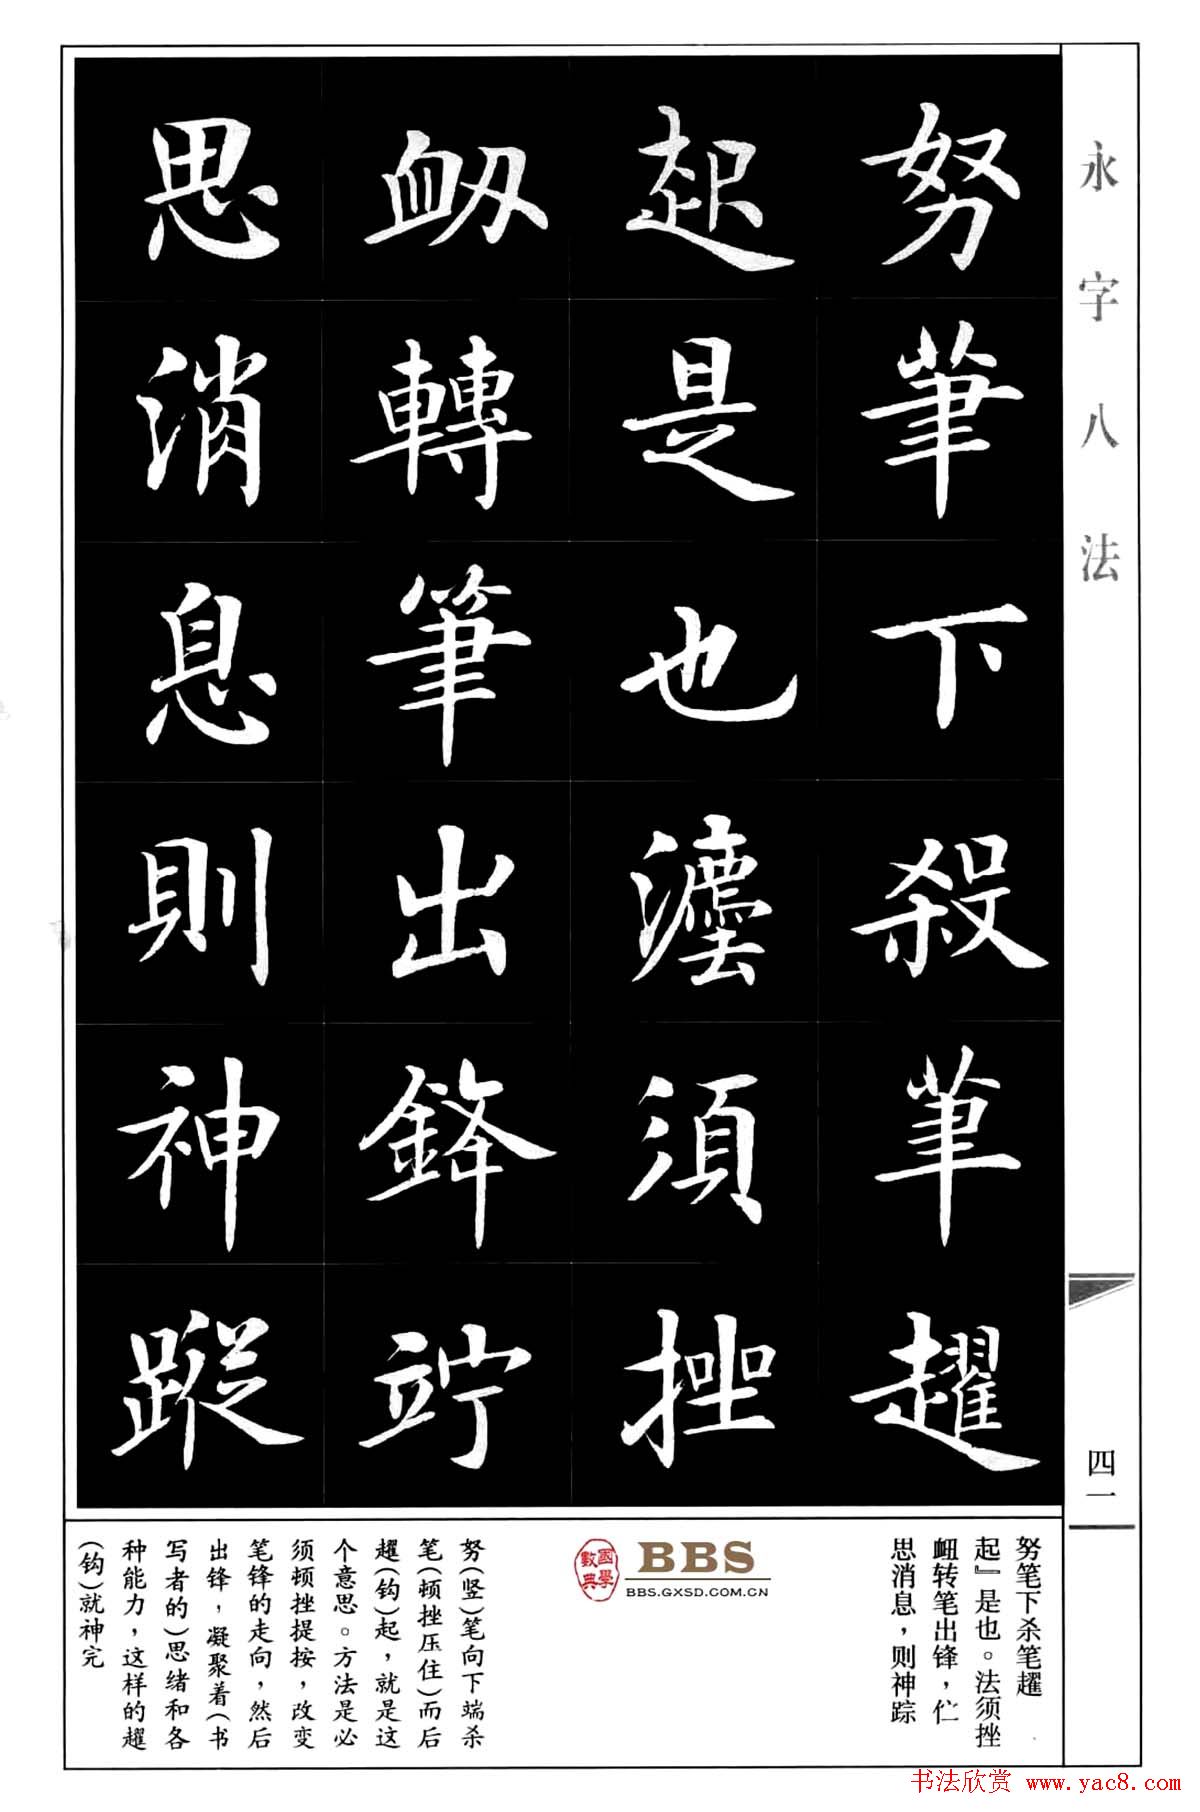 永字八法
努筆下殺筆趯
起是也灋須挫
衂轉筆出鋒竚
思消息則神蹤
四一
努笔下杀笔趯
起』是也。法须挫
衄转笔出锋，伫
思消息，则神踪
BBS
BBS.GXSD.COM.CN
國學數典
努(竖)笔向下端杀
笔(顿挫压住)而后
趯(钩)起，就是这
个意思。方法是必
须顿挫提按，改变
笔锋的走向，然后
出锋，凝聚着(书
写者的)思绪和各
种能力，这样的趯
(钩)就神完
书法欣赏 www.yac8.com